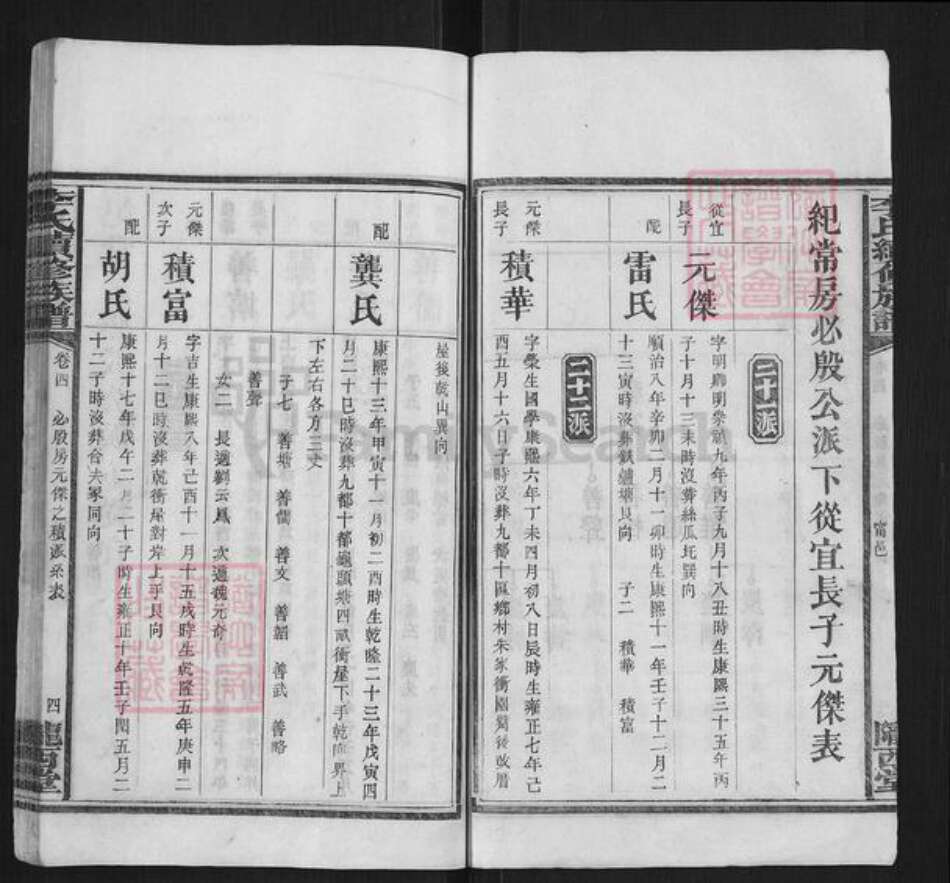 紀常房必殷公派下從宜長子元傑表
二十派
從宜長子
元傑
字明聯明崇禎九年丙子九月十八丑時生康熙三十五年丙
子十月十三未時沒葬絲瓜圫巽向
配
雷氏
順治八年辛卯二月十一卯時生康熙十一年壬子十二月二
十三寅時沒葬鐵爐壩艮向 子二 積華 積富
二十一派
元傑長子
積華
字榮生國學康熙六年丁未四月初八日辰時生雍正七年己
酉五月十六日子時沒葬九都十區鄉村朱家衝園菊後改厝
屋後乾山巽向
配
龔氏
康熙十三年甲寅十一月初二酉時生乾隆二十三年戊寅四
月二十巳時沒葬九都十都龜頭塘四甙衝屋下手乾向界上
下左右各方三丈
子七 善塘 善儒 善文 善韶 善武 善略
善聲
女二 長適劉云鳳 次適魏元奇
元傑次子
積富
字吉生康熙八年己酉十一月十五戌時生乾隆五年庚申二
月十二巳時沒葬乾衝屋對岸上手艮向
配
胡氏
康熙十七年戊午二月二十子時生雍正十年壬子閏五月二
十二子時沒葬合夫冢同向
李氏續修族譜
卷四
必殷房元傑之積派系表
四
隴西堂
李氏續修族譜
甯邑
隴西堂
FamilySearch